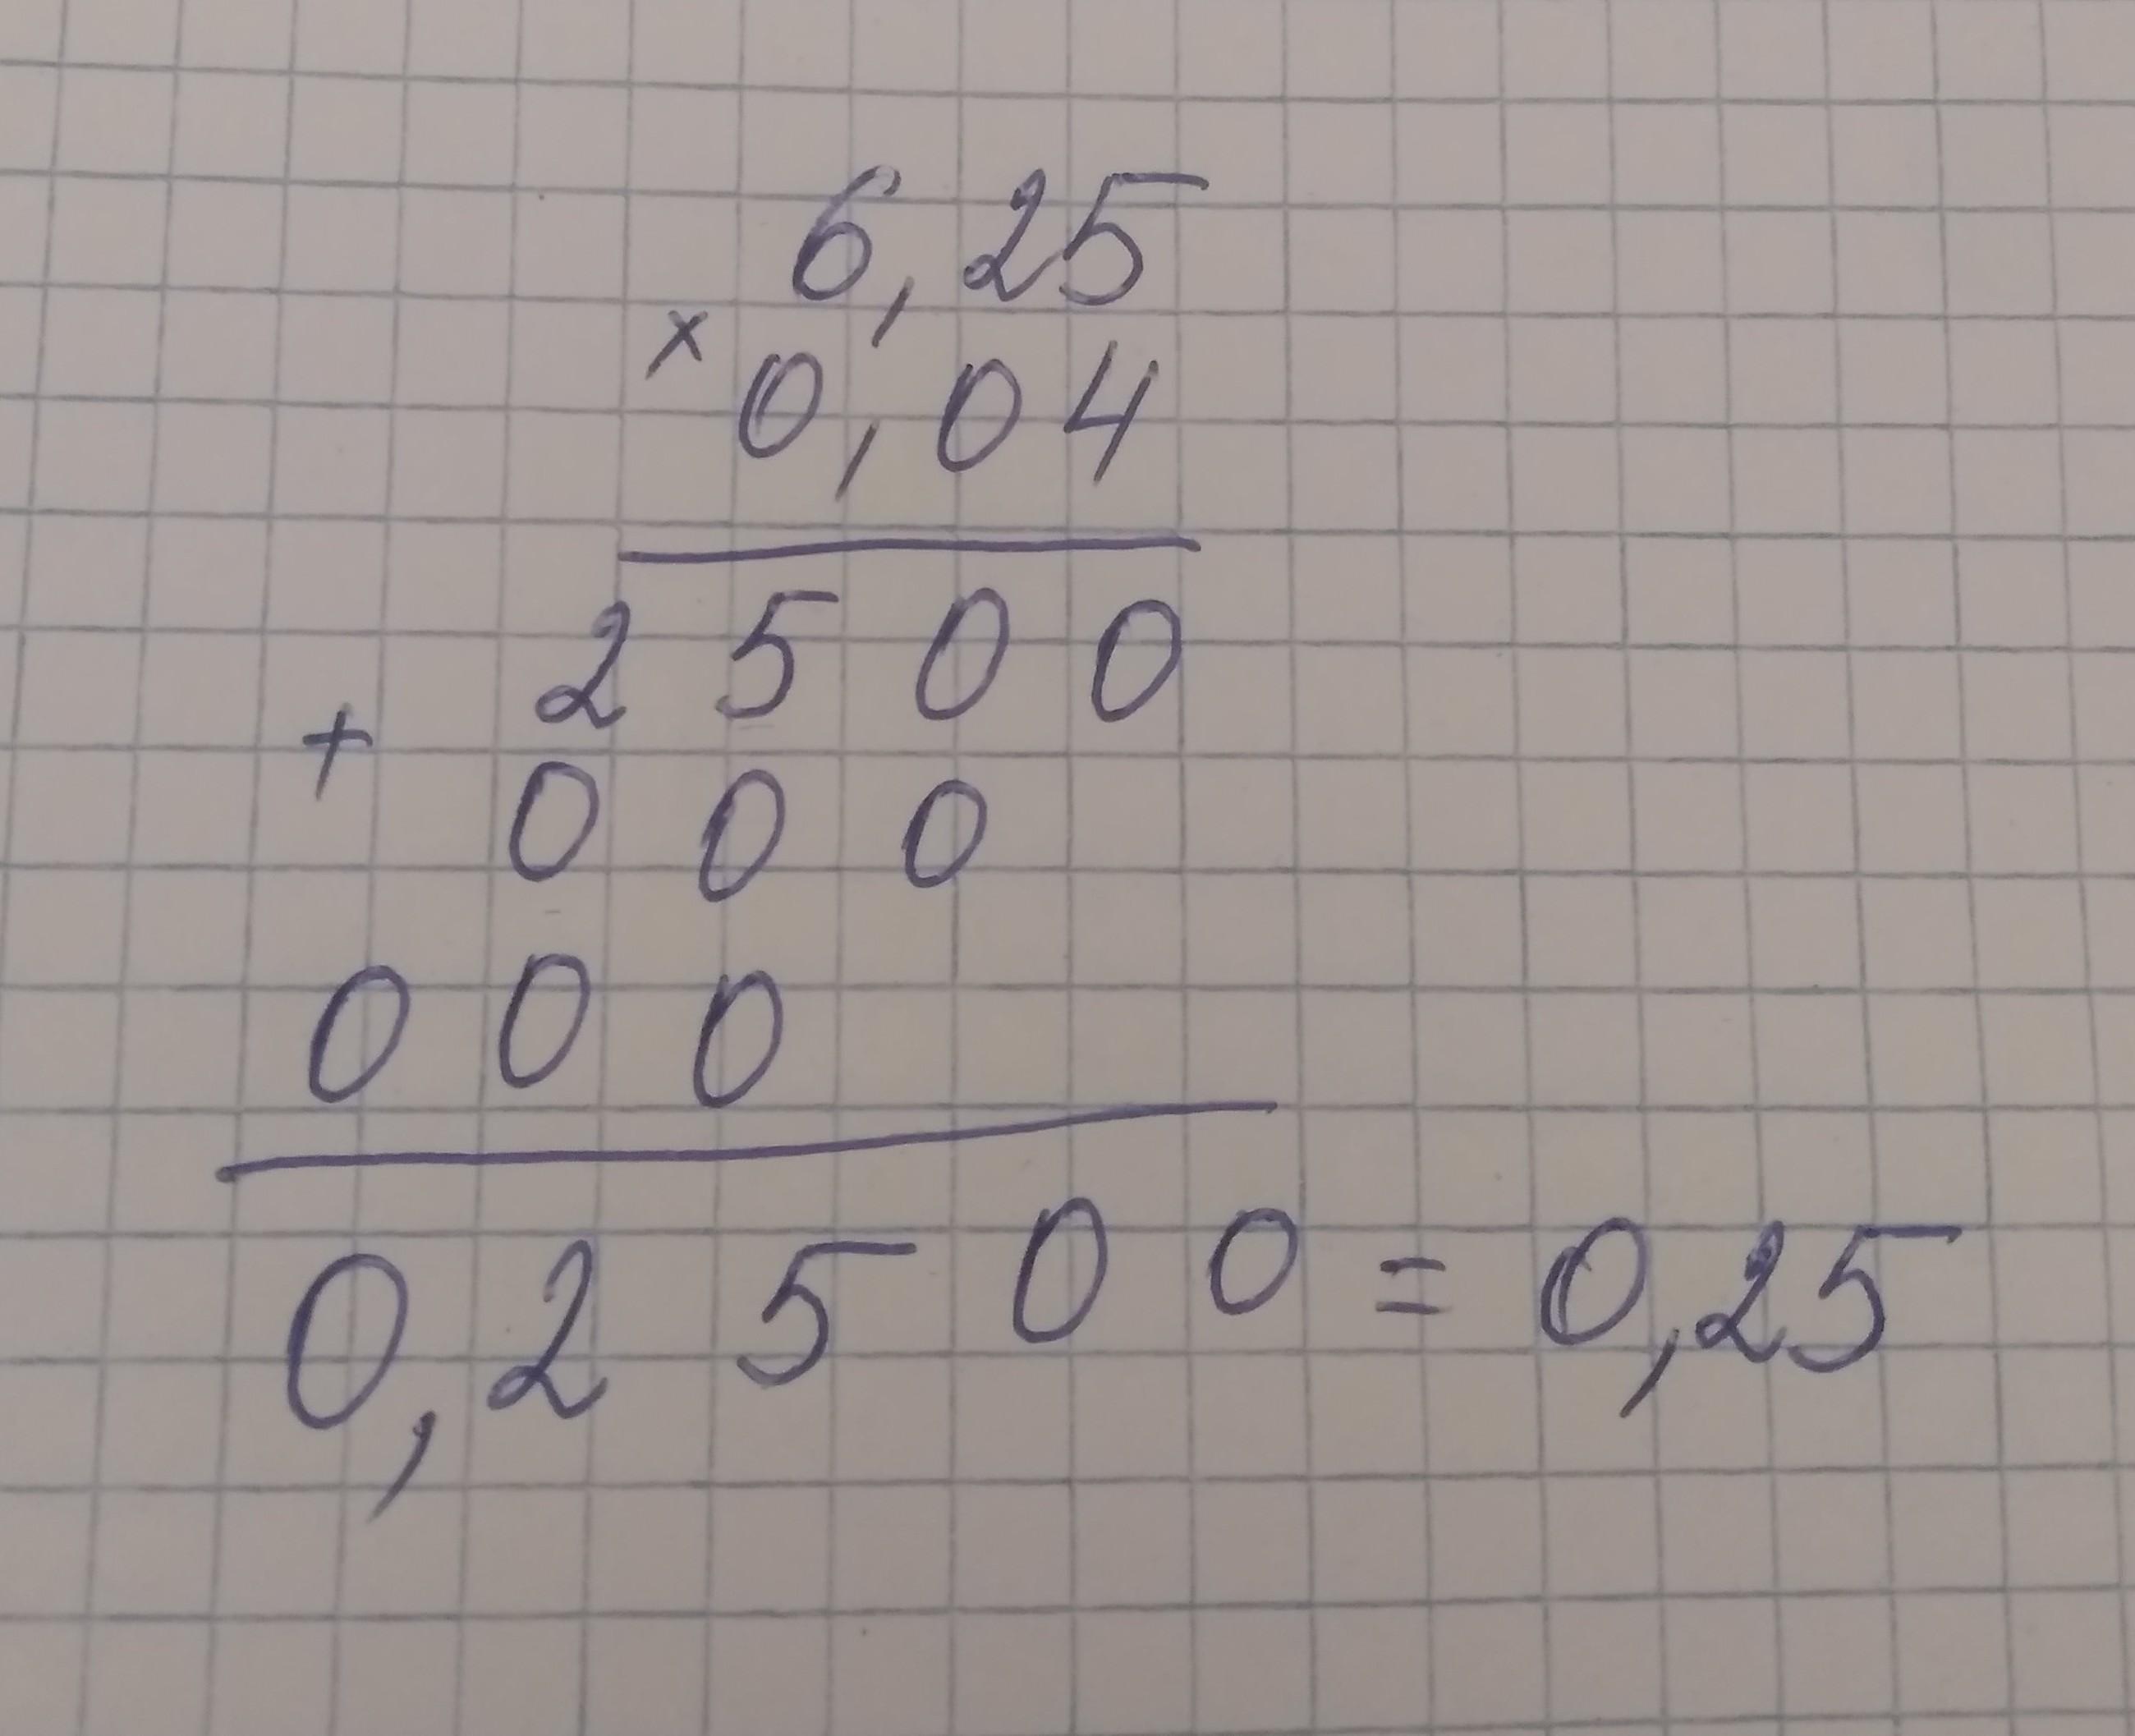 6,25
× 0,04
2500
+ 000
000
0,2500 = 0,25